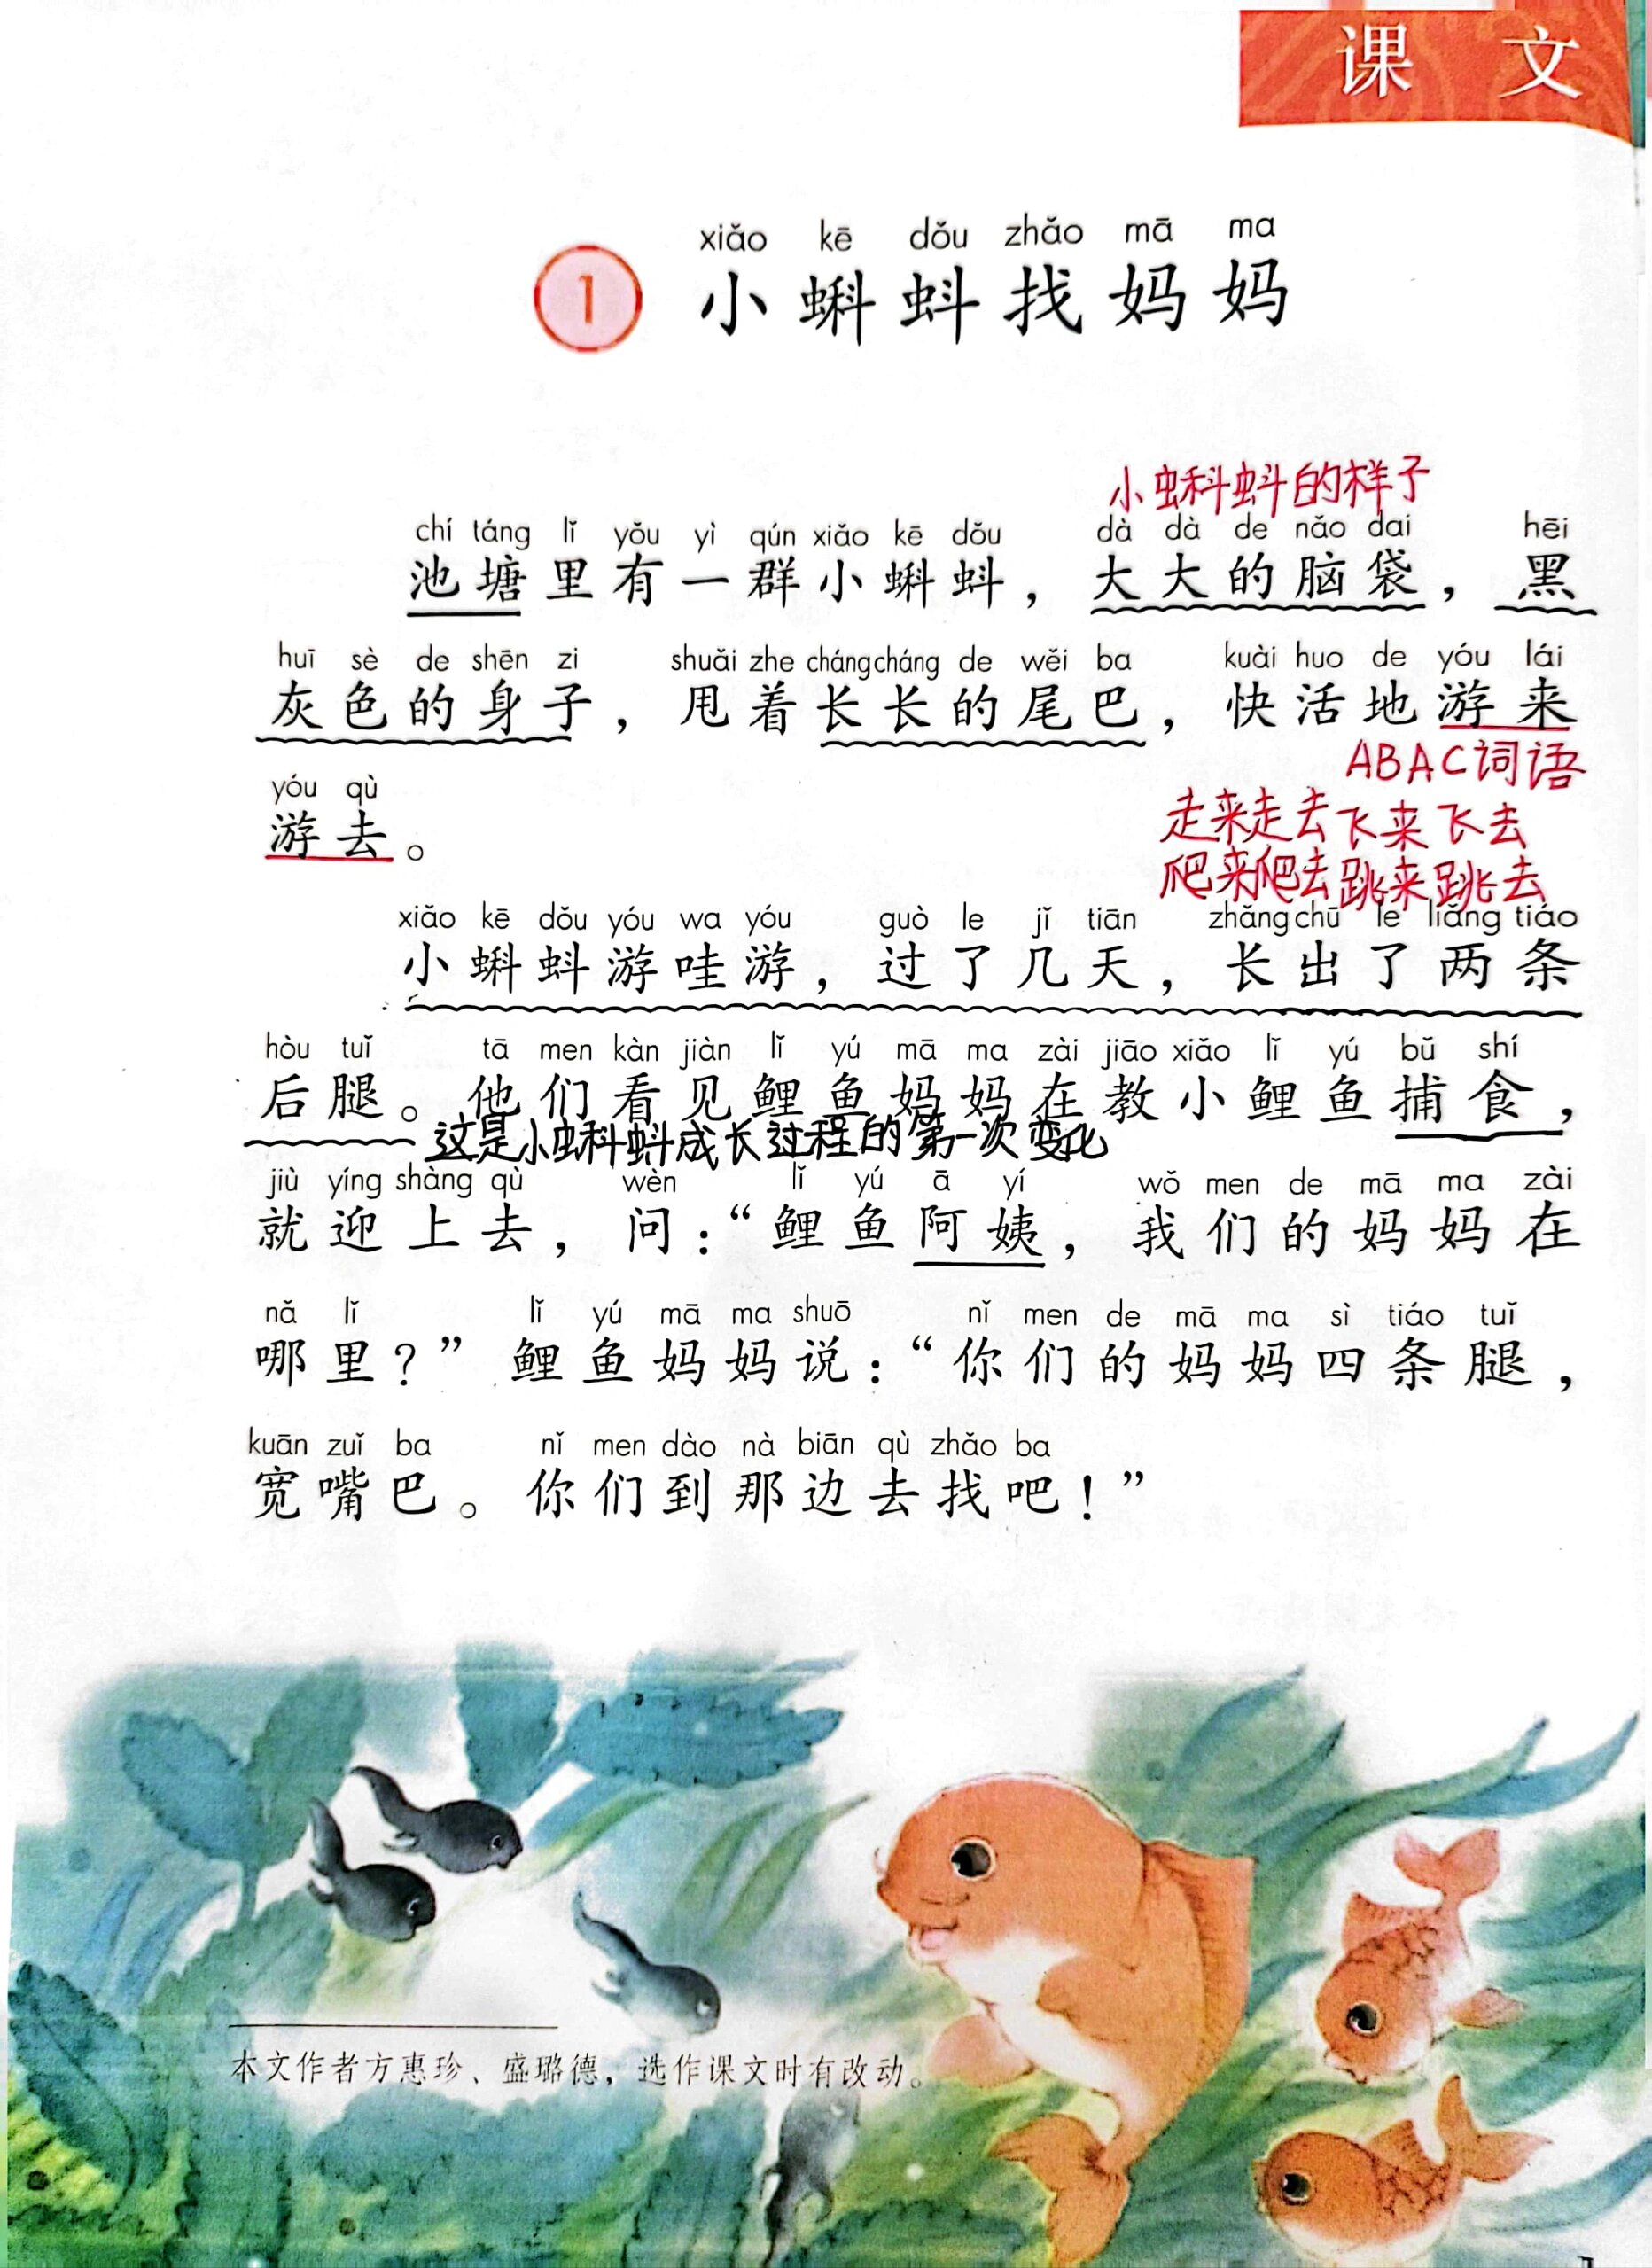 课 文
xiǎo kē dǒu zhǎo mā ma
1 小蝌蚪找妈妈
小蝌蚪的样子
chí táng lǐ yǒu yì qún xiǎo kē dǒu dà dà de nǎo dai hēi
池塘里有一群小蝌蚪，大大的脑袋，黑
huī sè de shēn zi shuǎi zhe cháng cháng de wěi ba kuài huo de yóu lái
灰色的身子，甩着长长的尾巴，快活地游来
ABAC词语
yóu qù
游去。
走来走去飞来飞去
爬来爬去跳来跳去
xiǎo kē dǒu yóu wa yóu guò le jǐ tiān zhǎng chū le liǎng tiáo
小蝌蚪游哇游，过了几天，长出了两条
hòu tuǐ tā men kàn jiàn lǐ yú mā ma zài jiāo xiǎo lǐ yú bǔ shí
后腿。他们看见鲤鱼妈妈在教小鲤鱼捕食，
这是小蝌蚪成长过程的第一次变化
jiù yíng shàng qù wèn lǐ yú ā yí wǒ men de mā ma zài
就迎上去，问：“鲤鱼阿姨，我们的妈妈在
nǎ lǐ lǐ yú mā ma shuō nǐ men de mā ma sì tiáo tuǐ
哪里？”鲤鱼妈妈说：“你们的妈妈四条腿，
kuān zuǐ ba nǐ men dào nà biān qù zhǎo ba
宽嘴巴。你们到那边去找吧！”
本文作者方惠珍、盛璐德，选作课文时有改动。